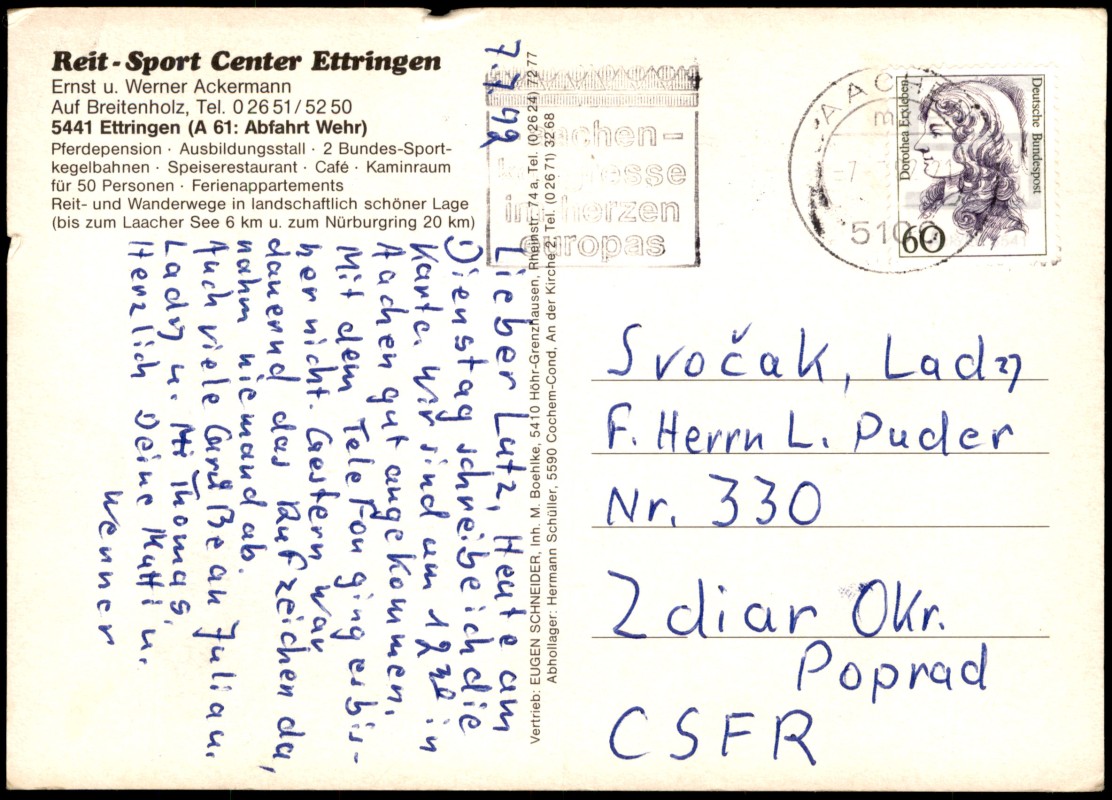 Reit-Sport Center Ettringen
Ernst u. Werner Ackermann
Auf Breitenholz, Tel. 02651/5250
5441 Ettringen (A 61: Abfahrt Wehr)
Pferdepension · Ausbildungsstall · 2 Bundes-Sport-
kegelbahnen · Speiserestaurant · Café · Kaminraum
für 50 Personen · Ferienappartements
Reit- und Wanderwege in landschaftlich schöner Lage
(bis zum Laacher See 6 km u. zum Nürburgring 20 km)
7.7.92
Lieber Lutz, Heute am
Dienstag schreibe ich die
Karte. Wir sind um in
Aachen gut angekommen.
Mit dem Telefon ging es bis-
her nicht. Gestern war
dauernd das Rufzeichen da,
nahm niemand ab.
Auch viele Grüße an Julian.
Lady u. Thomas.
Herzlich Deine Mutti u.
Werner
Vertrieb: EUGEN SCHNEIDER, Inh. M. Boehlke, 5410 Höhr-Grenzhausen, Rheinstr. 74 a, Tel. (0 26 24) 72 77
Abhollager: Hermann Schüller, 5590 Cochem-Cond, An der Kirche 2, Tel. (0 26 71) 32 68
aachen-
kongresse
im herzen
europas
AAC
510
Dorothea Erxleben
Deutsche Bundespost
60
Svočak, Lady
F. Herrn L. Puder
Nr. 330
Zdiar Okr.
Poprad
CSFR